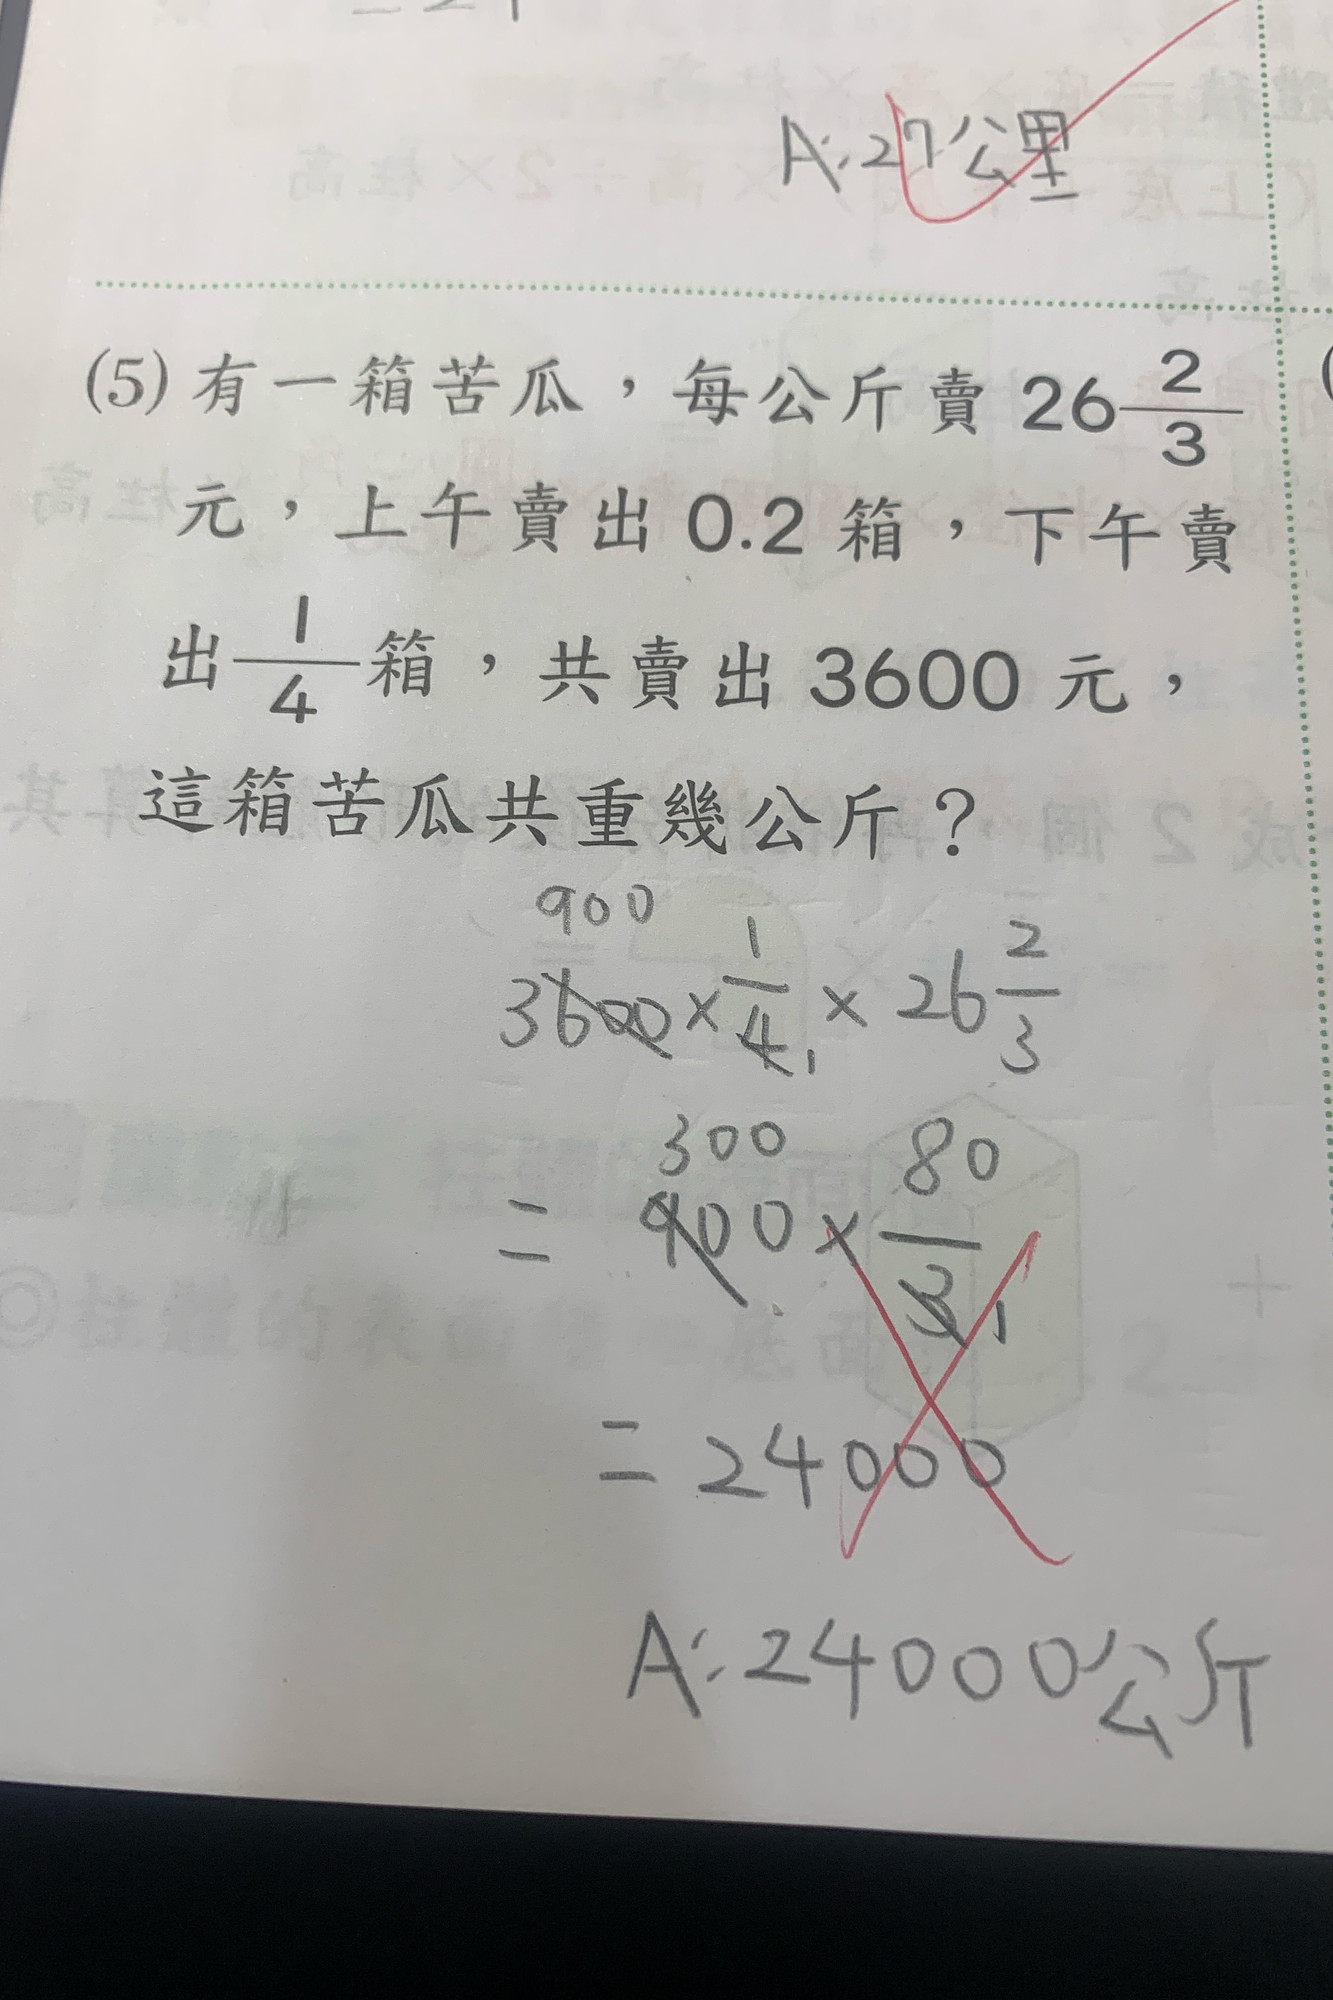 A:27公里
(5) 有一箱苦瓜，每公斤賣 26 2/3
元，上午賣出 0.2 箱，下午賣
出 1/4 箱，共賣出 3600 元，
這箱苦瓜共重幾公斤？
900
3600 × 1/4 1 × 26 2/3
300
= 900 × 80/3 1
= 24000
A:24000公斤